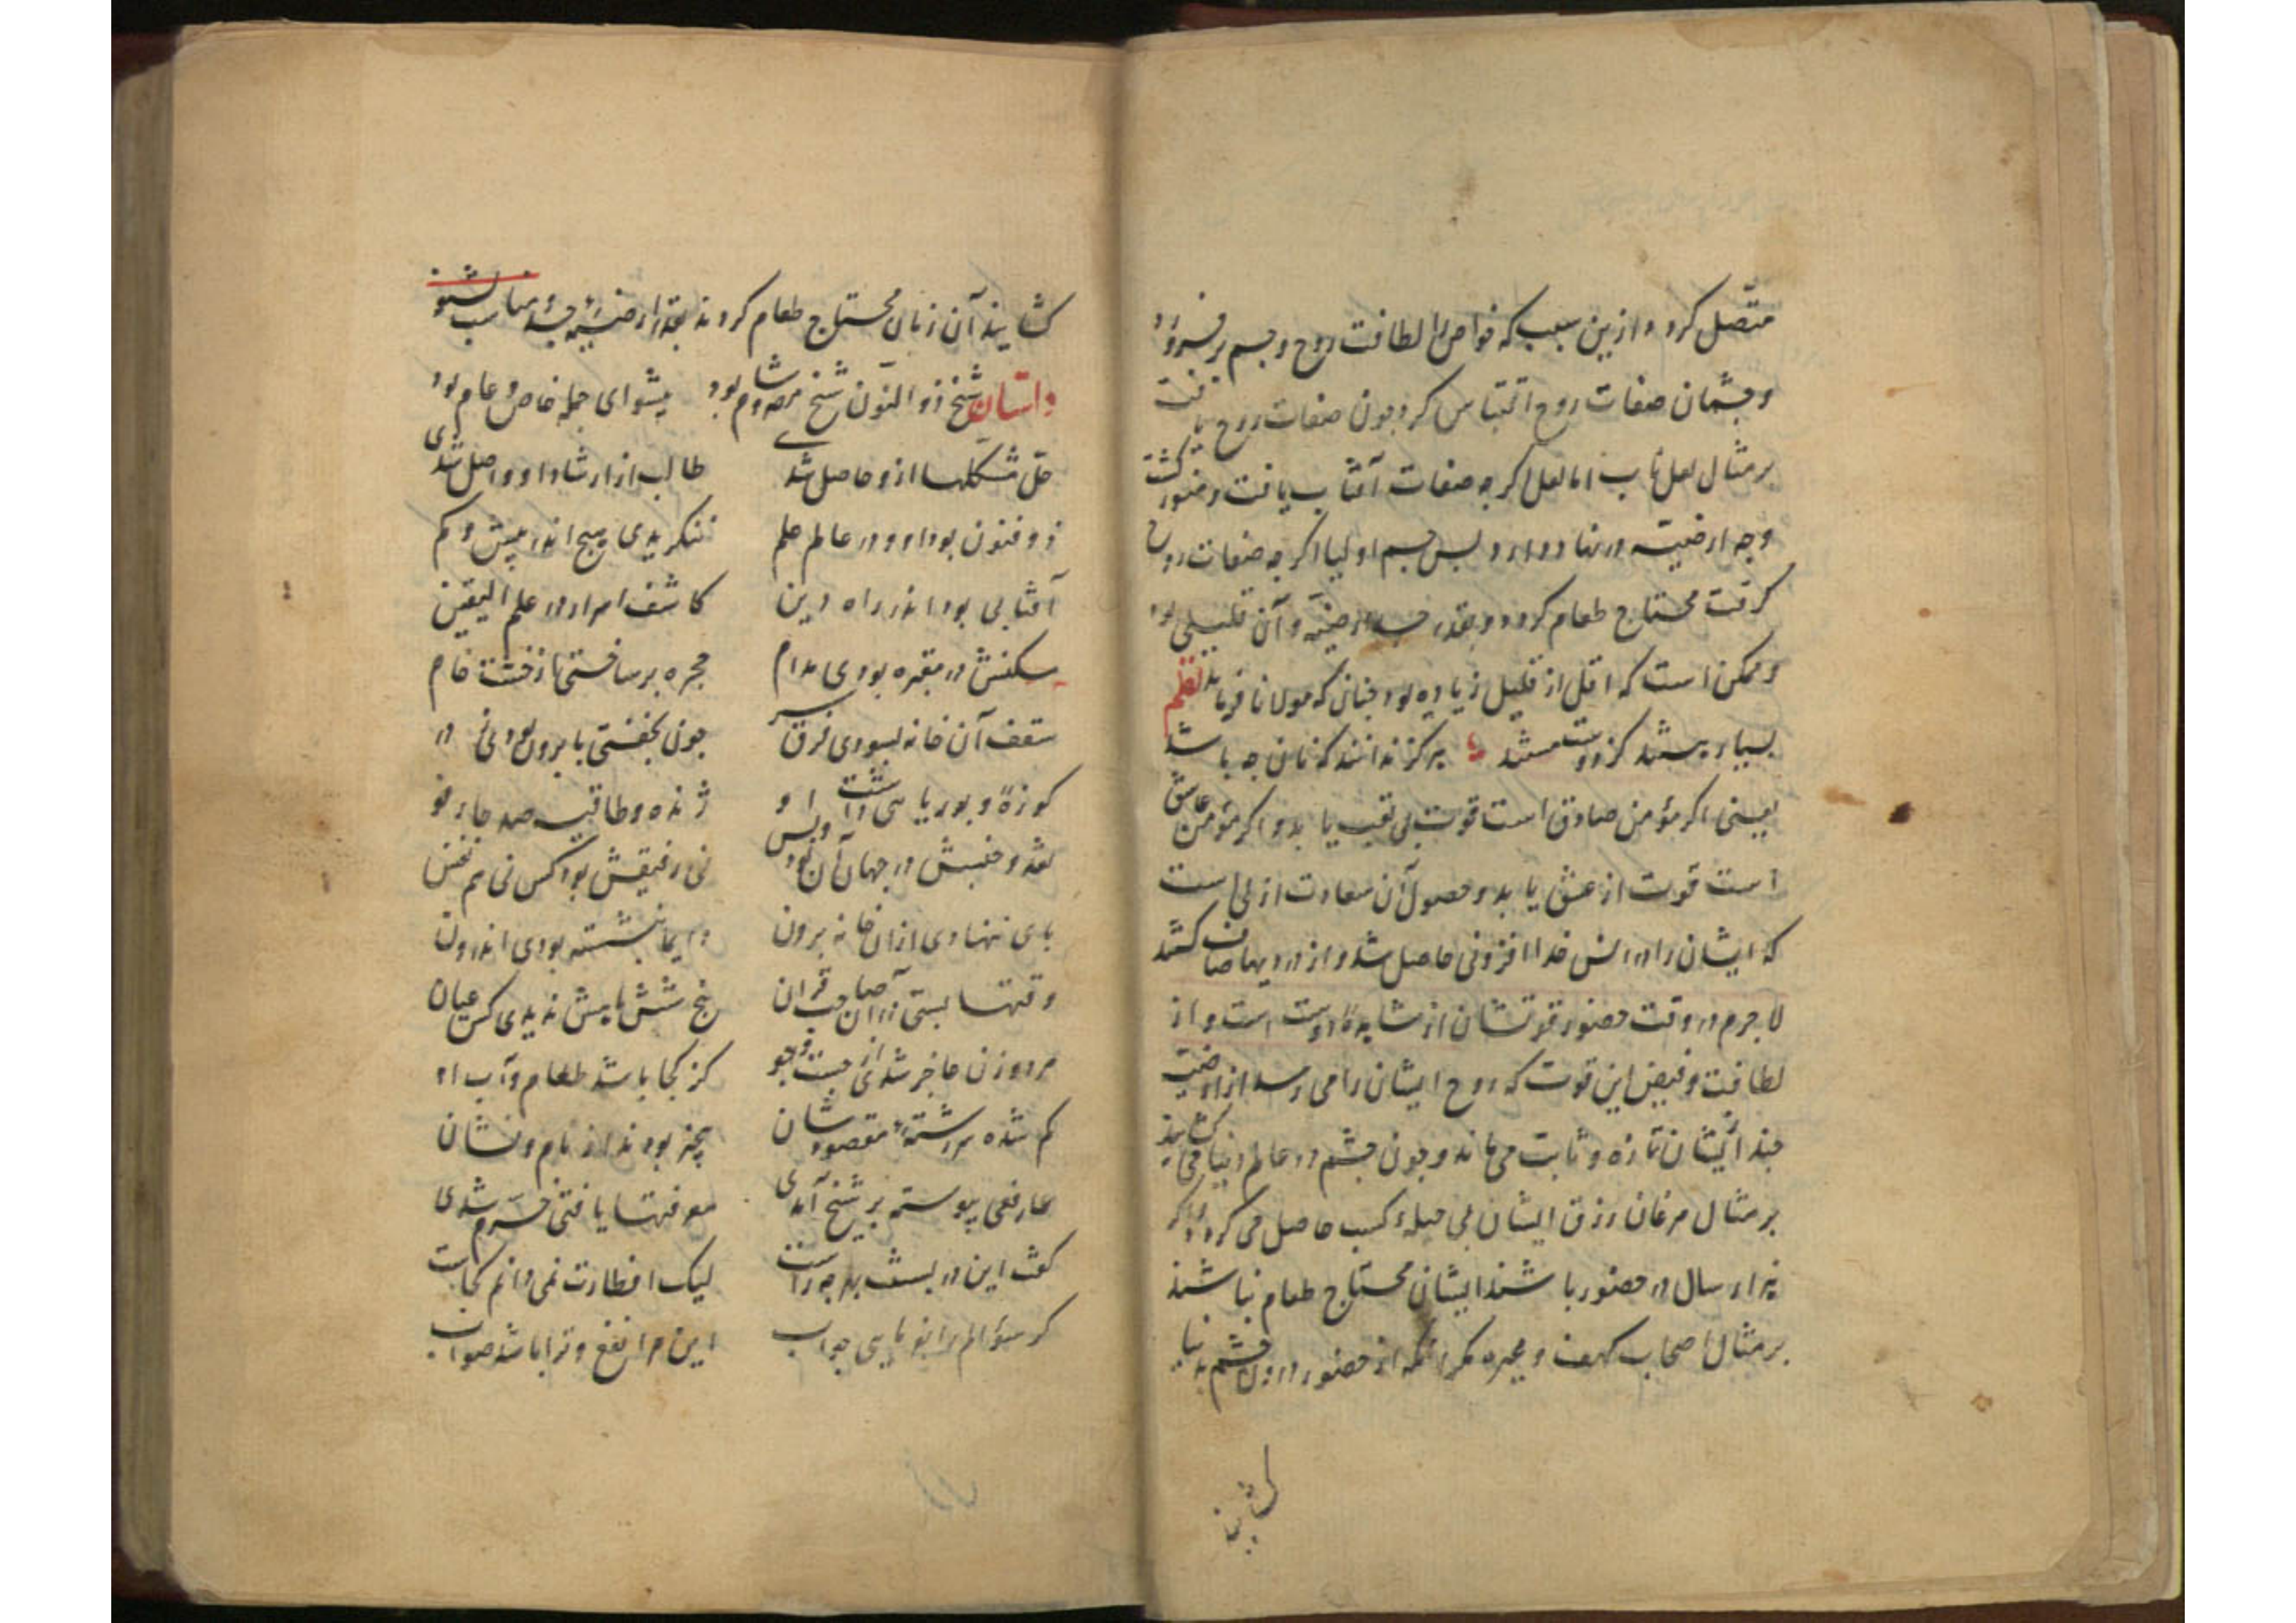 متّصل کردد و ازین سبب که خواص را لطافت روح و جسم بر
و جسمان صفات روح اقتباس کرد چون صفات روح یافت
بر مثال لعل ناب اما لعل اکرچه صفات آفتاب یافت و منور کشت
وجه ارضیته در نهاد دارد پس جسم اولیا اکرچه صفات روح
کرفت محتاج طعام کردد و بقدر ارضیّه و آن قلیلی بود
و ممکن است که اقل از قلیل زیاده بود چنان که مولانا فرماید نظم
بسیار کز دوست مستند هرکز ندانند که نان چه باشد
یعنی اکر مؤمن صادق است قوت بی تعب یابد و اکر مؤمن عاشق
است قوت از عشق یابد و حصول آن سعادت ازلی است
که ایشان را در انس خدا افزونی حاصل شد و از دردیها صاف کشتند
لا جرم در وقت حضور قوتشان از مشاهدهٔ دوست است و از
لطافت و فیض این قوت که روح ایشان را می رسد از ارضیت
جسد ایشان تازه و ثابت می ماند و چون چشم در عالم دنیا می کشایند
بر مثال مرغان رزق ایشان بی حیلهٔ کسب حاصل می کردد و اکر
هزار سال در حضور باشند ایشان محتاج طعام نباشند
بر مثال اصحاب کهف و غیره مکر آنکه از حضور درون چشم به دنیا
کشایند
کشایند آن زمان محتاج طعام کردند بقدر ارضیّهٔ جسد مناسب بشنو
داستان شیخ ذو النّون شیخ مصر و شام بود پیشوای جمله خاص و عام بود
حلّ مشکلها ازو حاصل شدی طالب از ارشاد او واصل شدی
ذو فنون بود او در عالم علم ننکریدی هیچ اندر بیش و کم
آفتابی بود اندر راه دین کاشف اسرار در علم الیقین
مسکنش در مقبره بودی مدام حجره بر ساختی از خشت خام
سقف آن خانه بسودی فرق سر چون بخفتی پا برون بودی ز در
کوزهٔ و بوریایی داشت او ژنده و طاقیه صد جا رفو
نقد و جنسش در جهان آن بود و بس نی رفیقش بود کس نی هم نفس
پای ننهادی ازان خانه برون دایما بنشسته بودی اندرون
وقتها بستی در آن صاحب قران پنج شش ماهش ندیدی کس عیان
مرد و زن عاجز شدی از جست و جو کز کجا باشد طعام و آب او
کم شده سر رشتهٔ مقصودشان بیخبر بودند از نام و نشان
عارفی پیوسته بر شیخ آمدی معرفتها یافتی خرّم شدی
کفت این در بستنت بهر چراست لیک افطارت نمی دانم کجاست
کر سؤالم را بفرمایی جواب این مرا نفع و ترا باشد صواب